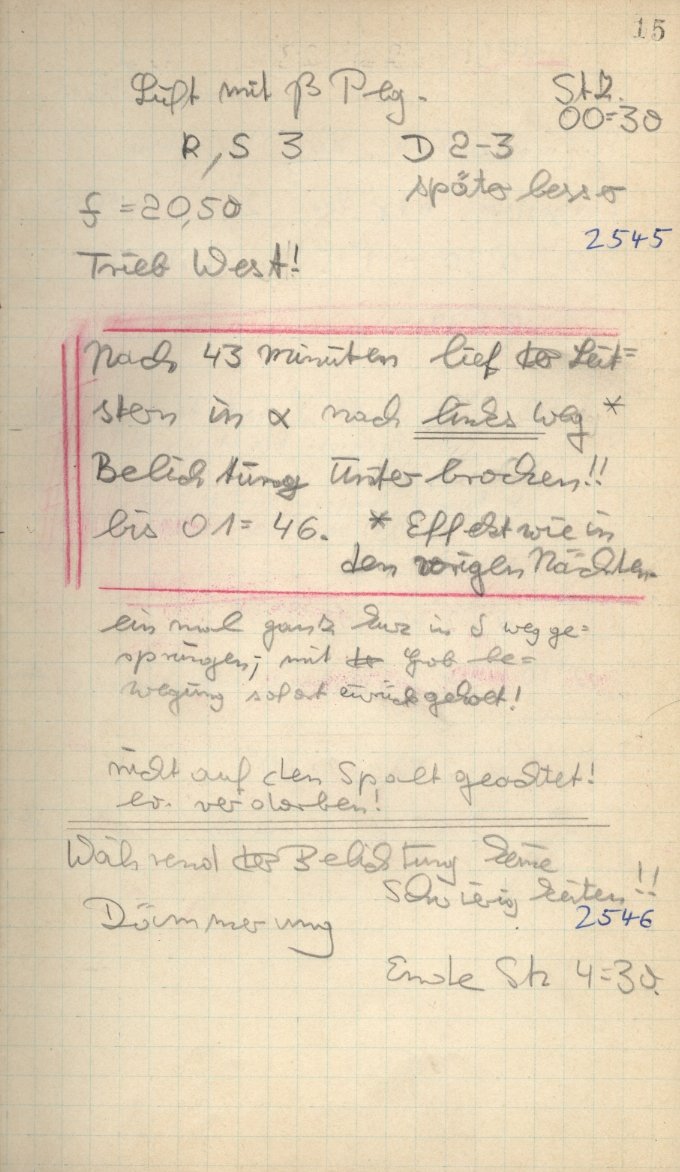 15
Luft mit β Peg.
StZ.
00=30
R, S 3 D 2-3
später besser
f = 20,50
2545
Trieb West!
Nach 43 Minuten lief der Leit=
stern in α nach links weg *
Belichtung unterbrochen!!
bis 01=46. * Effekt wie in
den vorigen Nächten.
ein mal ganz kurz in δ wegge=
sprungen; mit der Grob be=
wegung sofort zurückgeholt!
nicht auf den Spalt geachtet!
ev. verdorben!
Während der Belichtung keine
Schwierigkeiten!!
2546
Dämmerung
Ende Stz 4=30.